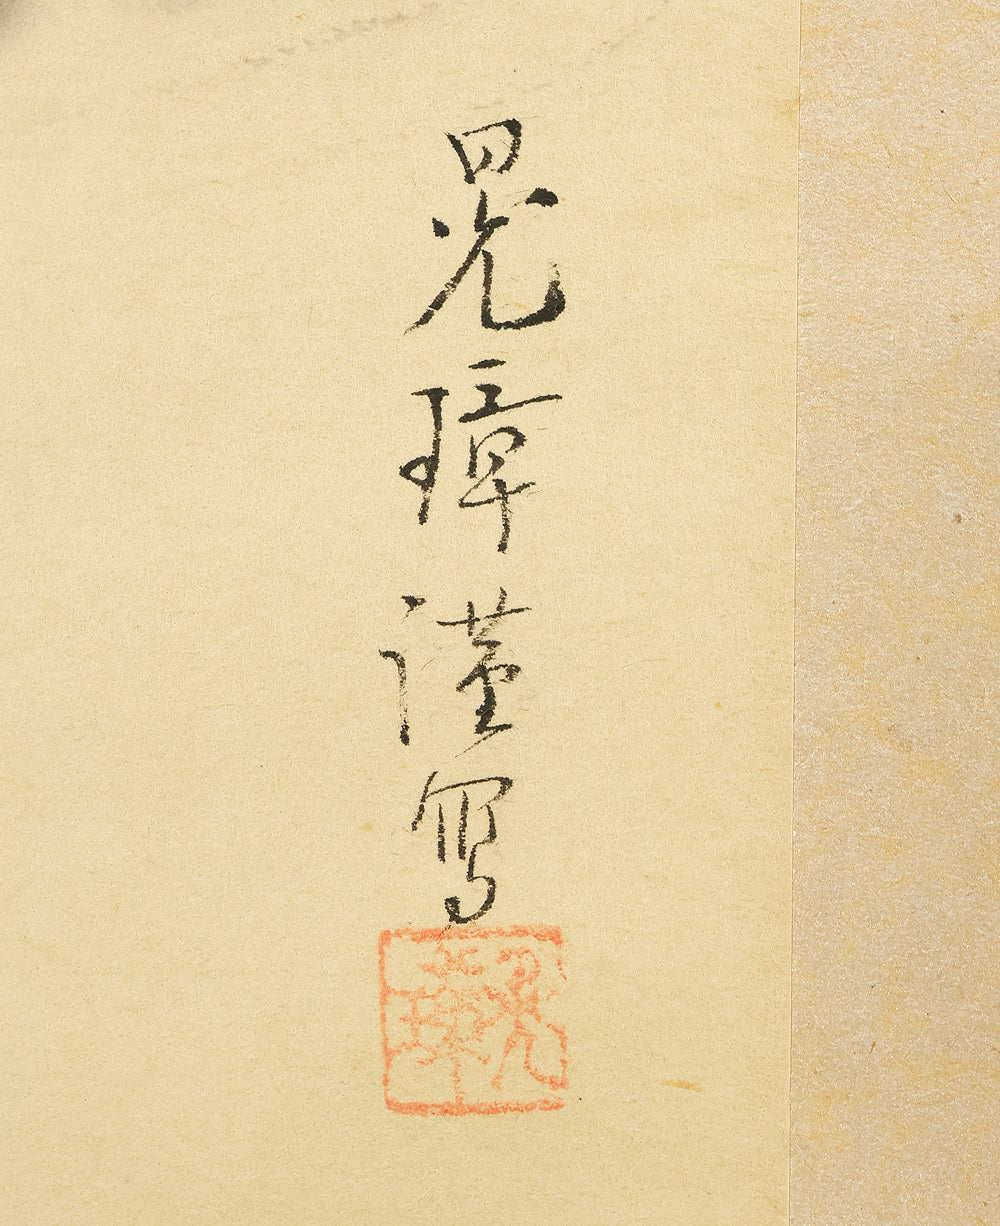 晃璋謹寫
晃璋